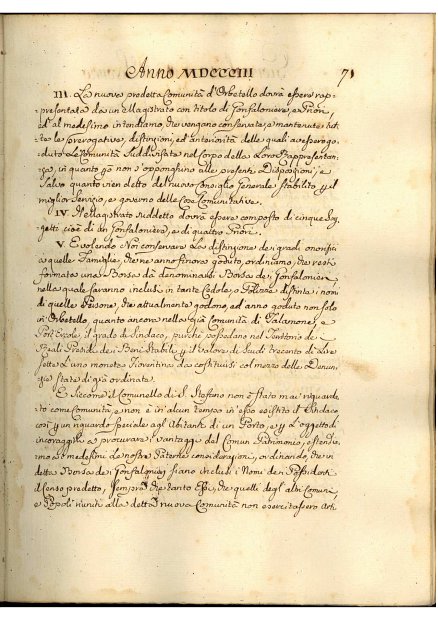 Anno MDCCCIII 71
III. La nuova predetta Comunità d'Orbetello dovrà essere rap-
presentata da un Magistrato con titolo di Gonfaloniere, e Priori,
ed al medesimo intendiamo, che vengano conservate, e mantenute tut-
te le prerogative, distinzioni, ed anteriorità delle quali avessero go-
duto le Comunità suddivisate nel corpo della Loro Rappresentan-
za, in quanto però non s'opponghino alle presenti Disposizioni, e
salvo quanto vien detto del nuovo Consiglio Generale stabilito p il
miglior servizio, e governo delle Cose Comunitative.
IV. Il Magistrato suddetto dovrà essere composto di cinque Sog-
getti cioè di un Gonfaloniere, e di quattro Priori.
V. E volendo Noi conservare la distinzione de i gradi onorifici
a quelle Famiglie, che ne anno finora goduto, ordiniamo, che resti
formata una Borsa da denominarsi Borsa de i Gonfalonieri
nella quale saranno inclusi in tante Cedole, o Polizze distinte i nomi
di quelle Persone, che attualmente godono, ed anno goduto non solo
in Orbetello, quanto ancora nelle già Comunità di Talamone, e
Port'Ercole il grado di Sindaco, purchè possedano nel Territorio de
Reali Presidi de i Beni Stabili p il valore di Scudi trecento di Lire
sette l'uno moneta Fiorentina da costituirsi col mezzo delle Denun-
zie state di già ordinate.
E siccome il Comunello di S. Stefano non è stato mai riguarda-
to come Comunità, e non è in alcun tempo in esso esistito il Sindaco
così p un riguardo speciale agl'Abitanti di un Porto, e p l'oggetto di
incoraggirli a procurare i vantaggi del Comun Patrimonio, estendia-
mo ad medesimi le nostre Paterne considerazioni, ordinando, che in
detta Borsa de i Gonfalonieri siano inclusi i Nomi de i Possidenti
il Censo predetto, sempre che tanto Essi, che quelli degl'altri Comuni,
e Popoli riuniti alla detta nuova Comunità non esercitassero Arti